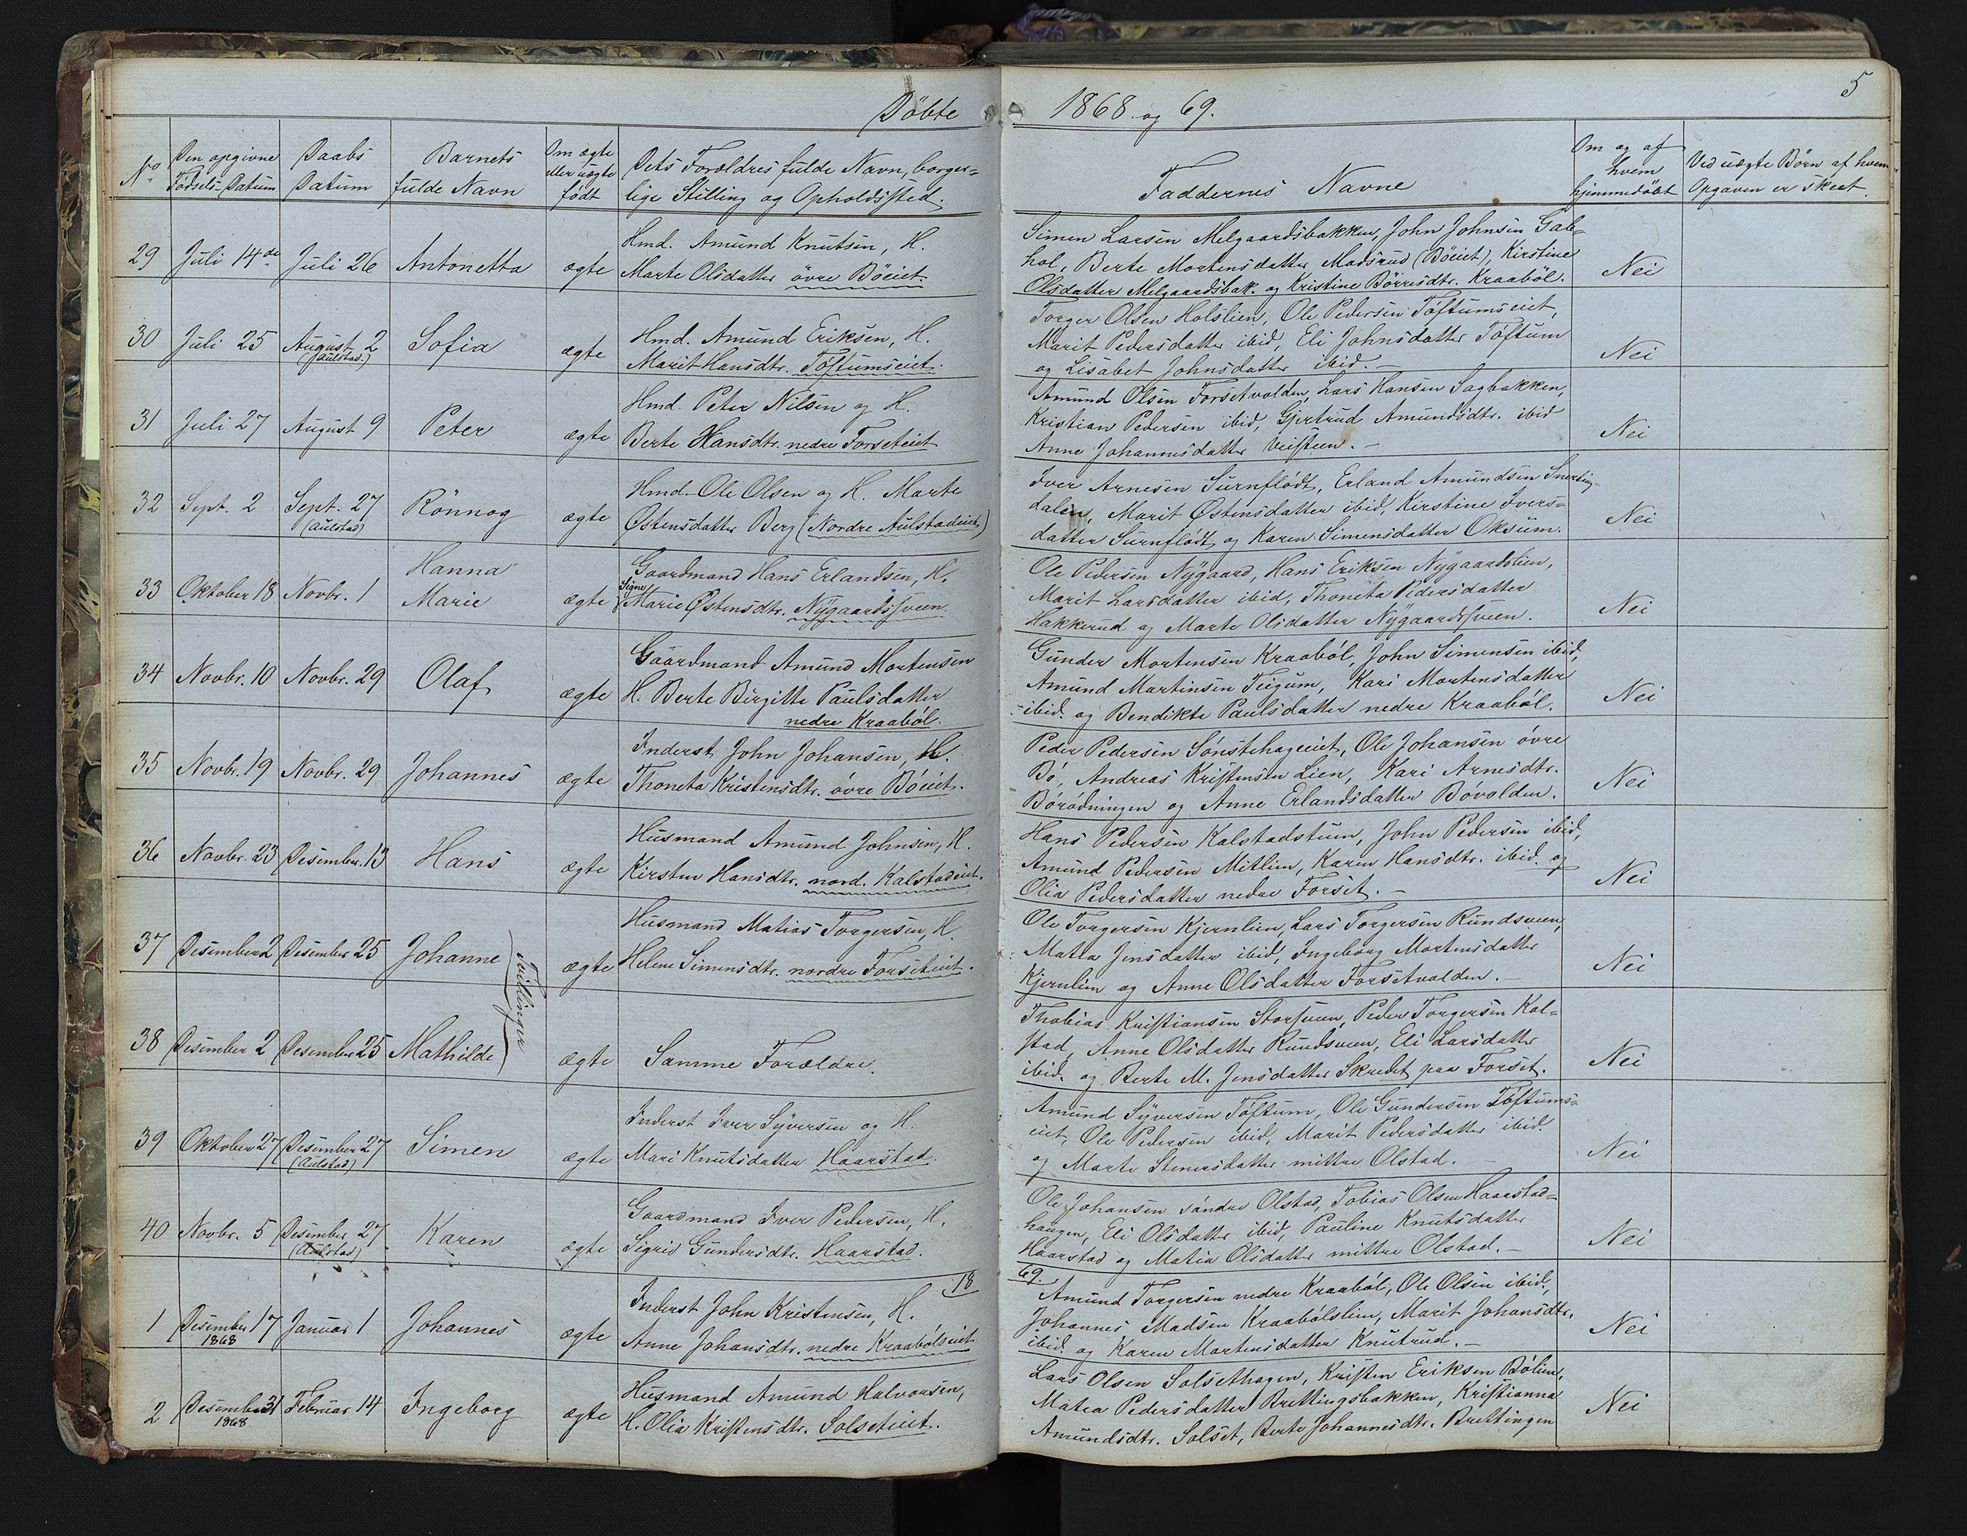 5
Döbte 1868 og 69.
No
Den opgivne
Fødsels-Datum
Daabs
Datum
Barnets
fulde Navn
Om ægte
eller uægte
født
Dets Forældres fulde Navn, borger-
lige Stilling og Opholdssted.
Faddernes Navne
Om og af
hvem
hjemmedöbt
Ved uægte Børn af hvem
Opgaven er skeet.
29 Juli 14de Juli 26 Antonetta ægte
Hmd. Amund Knutsen, H.
Marte Olsdatter övre Böeiet.
Simen Larsen Melgaardsbakken, John Johnsen Gab-
hol, Berte Mortensdatter Madsrud (Böeiet), Kirstine
Olsdatter Melgaardsbak. og Kristine Börresdtr. Kraaböl.
Nei
30 Juli 25 August 2
(Aulstad)
Sofia ægte
Hmd. Amund Eriksen, H.
Marit Hansdtr. Töftumseiet.
Torger Olsen Holslien, Ole Pedersen Töftumseiet,
Marit Pedersdatter ibid, Eli Johnsdatter Töftum
og Lisabet Johnsdatter ibid. –
Nei
31 Juli 27 August 9 Peter ægte
Hmd. Peter Nilsen og H.
Berte Hansdtr. nedre Forseteiet
Amund Olsen Forsetvolden, Lars Hansen Sagbakken,
Kristian Pedersen ibid, Gjertrud Amundsdtr. ibid
Anne Johannesdatter Veisteen. –
Nei
32 Sept. 2 Sept. 27
(Aulstad)
Rönnog ægte
Hmd. Ole Olsen og H. Marte
Østensdatter Berg (Nordre Aulstadeiet)
Iver Arnesen Surnflödt, Erland Amundsen Snerting-
dalen, Marit Østensdatter ibid, Kirstine Ivers-
datter Surnflödt og Karen Simensdatter Oksum.
Nei
33 Oktober 18 Novbr. 1 Hanna
Marie
ægte
Gaardmand Hans Erlandsen, H.
Signe
Marie Østensdtr. Nÿgaardssveen.
Ole Pedersen Nÿgaard, Hans Eriksen Nÿgaardslien,
Marit Larsdatter ibid, Thoneta Pedersdatter
Hakkerud og Marte Olsdatter Nÿgaardssveen.
Nei
34 Novbr. 10 Novbr. 29 Olaf ægte
Gaardmand Amund Mortensen
H. Berte Birgitte Paulsdatter
nedre Kraaböl.
Gunder Mortensen Kraaböl, John Simensen ibid,
Amund Martinsen Teigum, Kari Mortensdatter
ibid. og Bendikte Paulsdatter nedre Kraaböl.
Nei
35 Novbr. 19 Novbr. 29 Johannes ægte
Inderst John Johansen, H.
Thoneta Kristensdtr. övre Böeiet.
Peder Pedersen Sönstehageiet, Ole Johansen övre
Bö, Andreas Kristensen Lien, Kari Arnesdtr.
Börödningen og Anne Erlandsdatter Bövolden.
Nei
36 Novbr. 23 Desember 13 Hans ægte
Husmand Amund Johnsen, H.
Kirsten Hansdtr. nord. Kalstadeiet.
Hans Pedersen Kalstadstuen, John Pedersen ibid,
Amund Pedersen Mitlien, Karen Hansdtr. ibid. og
Olia Pedersdatter nedre Forset. –
Nei
37 Desember 2 Desember 25 Johanne ægte
Tvillinger
Husmand Matias Torgersen, H.
Helene Simensdtr. nordre Forseteiet.
Ole Torgersen Kjernlien, Lars Torgersen Rundsveen,
Matea Jensdatter ibid, Ingeborg Mortensdatter
Kjernlien og Anne Olsdatter Forsetvolden. –
Nei
38 Desember 2 Desember 25 Mathilde ægte
Samme Forældre.
Thobias Kristiansen Storsveen, Peder Torgersen Kal-
stad, Anne Olsdatter Rundsveen, Eli Larsdatter
ibid. og Berte M. Jensdatter Skredet paa Forset.
Nei
39 Oktober 27 Desember 27
(Aulstad)
Simen ægte
Inderst Iver Sÿversen og H.
Mari Knutsdatter Haarstad.
Amund Sÿversen Töftum, Ole Gundersen Töftums-
eiet, Ole Pedersen ibid, Marit Pedersdatter ibid.
og Marte Stenersdatter mittre Olstad. –
Nei
40 Novbr. 5 Desember 27
(Aulstad)
Karen ægte
Gaardmand Iver Pedersen, H.
Sigrid Gundersdtr. Haarstad.
Ole Johansen söndre Olstad, Tobias Olsen Haarstad-
haugen, Eli Olsdatter ibid, Pauline Knutsdatter
Haarstad og Matia Olsdatter mittre Olstad. –
Nei
18 69.
1 Desember 17
1868
Januar 1 Johannes ægte
Inderst John Kristensen, H.
Anne Johansdtr. nedre Kraabölseiet
Amund Torgersen nedre Kraaböl, Ole Olsen ibid,
Johannes Madsen Kraabölslien, Marit Johansdtr.
ibid. og Karen Martensdatter Knutrud. –
Nei
2 Desember 31
1868
Februar 14 Ingeborg ægte
Husmand Amund Halvorsen,
H. Olia Kristensdtr. Solseteiet.
Lars Olsen Solsethagen, Kristen Eriksen Bölien,
Matea Pedersdatter Brettingsbakken, Kristianna
Amundsdtr. Solset, Berte Johannesdtr. Brettingen
Nei